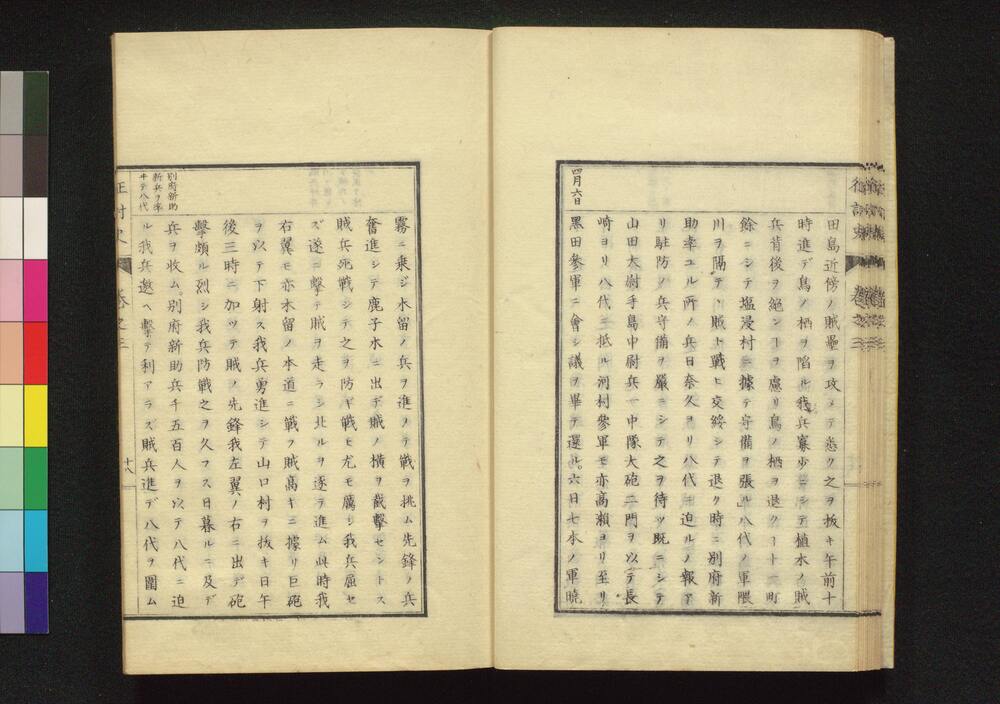 四月六日
田島近傍ノ賊壘ヲ攻メテ悉ク之ヲ抜キ午前十
時進デ鳥ノ栖ヲ陷ル我兵寡少ニシテ植木ノ賊
兵背後ヲ絶ンヿヲ慮リ鳥ノ栖ヲ退クヿ十一町
餘ニシテ塩浸村ニ據テ守備ヲ張ル」八代ノ軍隈
川ヲ隔テヽ賊ト戰ヒ交綏シテ退ク時ニ別府新
助率ユル所ノ兵日奈久ヨリ八代ニ迫ルノ報ア
リ駐防ノ兵守備ヲ嚴ニシテ之ヲ待ツ既ニシテ
山田大尉手島中尉兵一中隊大砲二門ヲ以テ長
崎ヨリ八代ニ抵ル河村參軍モ亦高瀬ヨリ至リ
黑田參軍ニ會シ議ヲ畢テ還ル。六日七本ノ軍曉
霧ニ乗ジ木留ノ兵ヲ進メテ戰ヲ挑ム先鋒ノ兵
奮進シテ鹿子木ニ出デ賊ノ横ヲ截擊セントス
賊兵死戰シテ之ヲ防ギ戰モ尤モ厲シ我兵屈セ
ズ遂ニ擊テ賊ヲ走ラシ北ルヲ逐テ進ム此時我
右翼モ亦木留ノ本道ニ戰フ賊高キニ據リ巨砲
ヲ以テ下射ス我兵勇進シテ山口村ヲ抜キ日午
後三時ニ加ツテ賊ノ先鋒我左翼ノ右ニ出デ砲
擊頗ル烈シ我兵防戰之ヲ久フス日暮ルニ及デ
兵ヲ收ム。別府新助兵千五百人ヲ以テ八代ニ迫
ル我兵邀ヘ擊テ利アラズ賊兵進デ八代ヲ圍ム
別府新助
新兵ヲ率
ヰテ八代
卷之三
十八